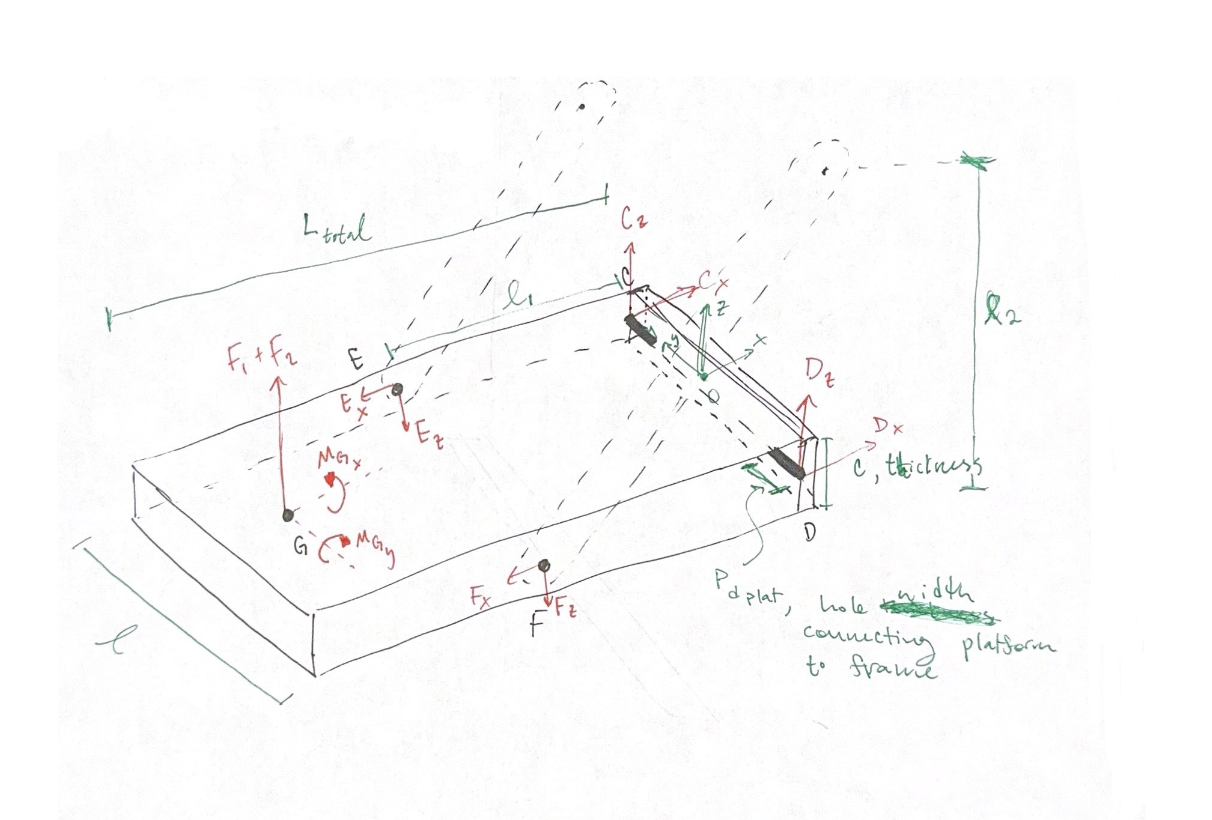 L total
C z
l 1
C
C x
z
l 2
y
x
F1 + F2
E
E x
E z
O
D z
D x
M G x
C, thickness
G
M G y
D
F x
F z
F
l
P d plat, hole width
connecting platform
to frame